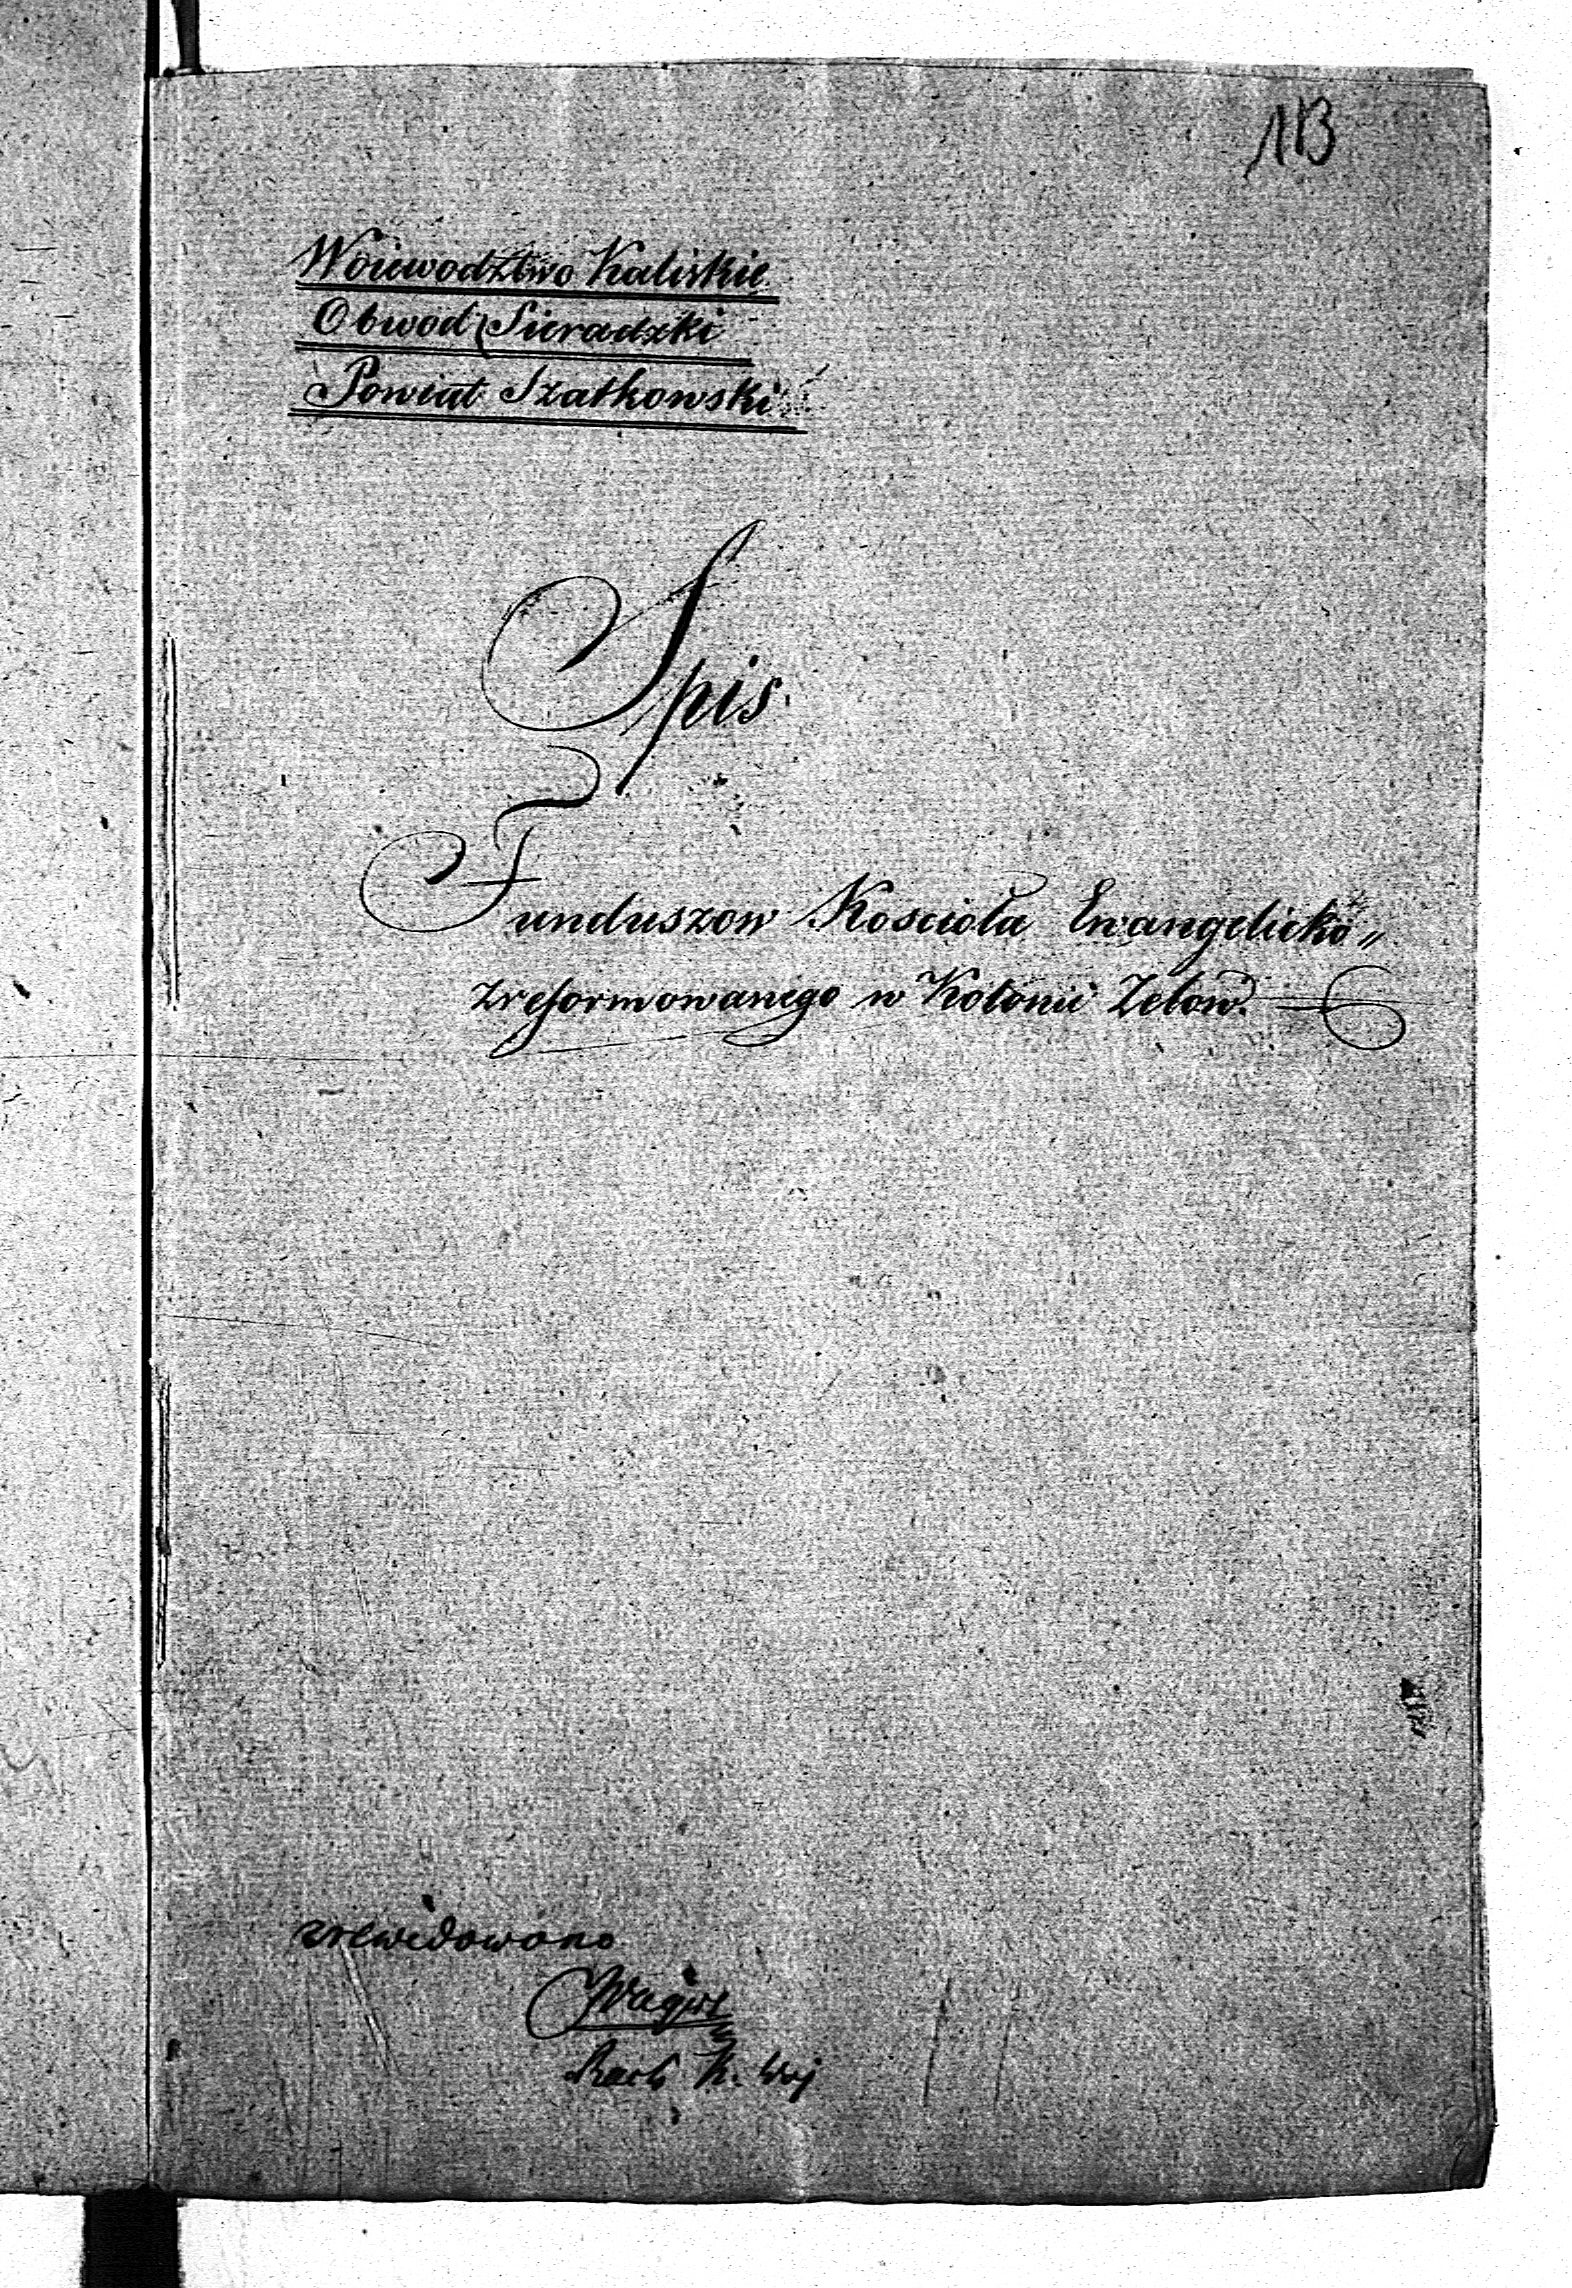 113
Woiewodztwo Kaliskie
Obwod Sieradzki
Powiat Szatkowski
Spis
Funduszow Kosciola Ewangelicko„
zreformowanego w Kolonii Zelow.
zrewidowano
Rach K. Woj